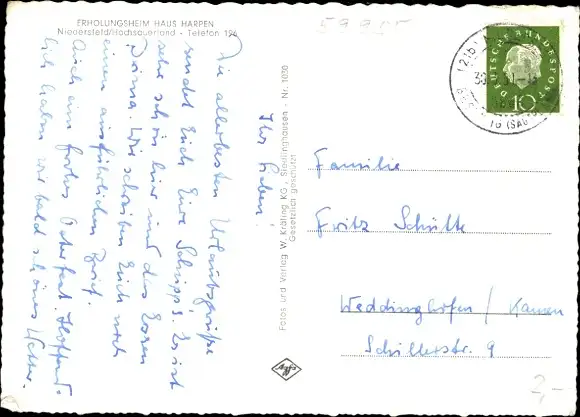 ERHOLUNGSHEIM HAUS HARPEN
Niedersfeld/Hochsauerland - Telefon 196
Ihr Lieben!
Die allerbesten Urlaubsgrüße
sendet Euch Eure Schipp's. Es ist
sehr schön hier und das Essen
prima. Wir schreiben Euch noch
einen ausführlichen Brief.
Auch ein frohes Osterfest. Hoffent-
lich haben wir bald schönes Wetter.
Fotos und Verlag W. Kräling KG., Siedlinghausen · Nr. 1030
Gesetzlich geschützt
agfa
59955
DEUTSCHE BUNDESPOST
10
(21b)
(SAU
Familie
Fritz Schulte
Weddinghofen / Kamen
Schillerstr. 9
2,-